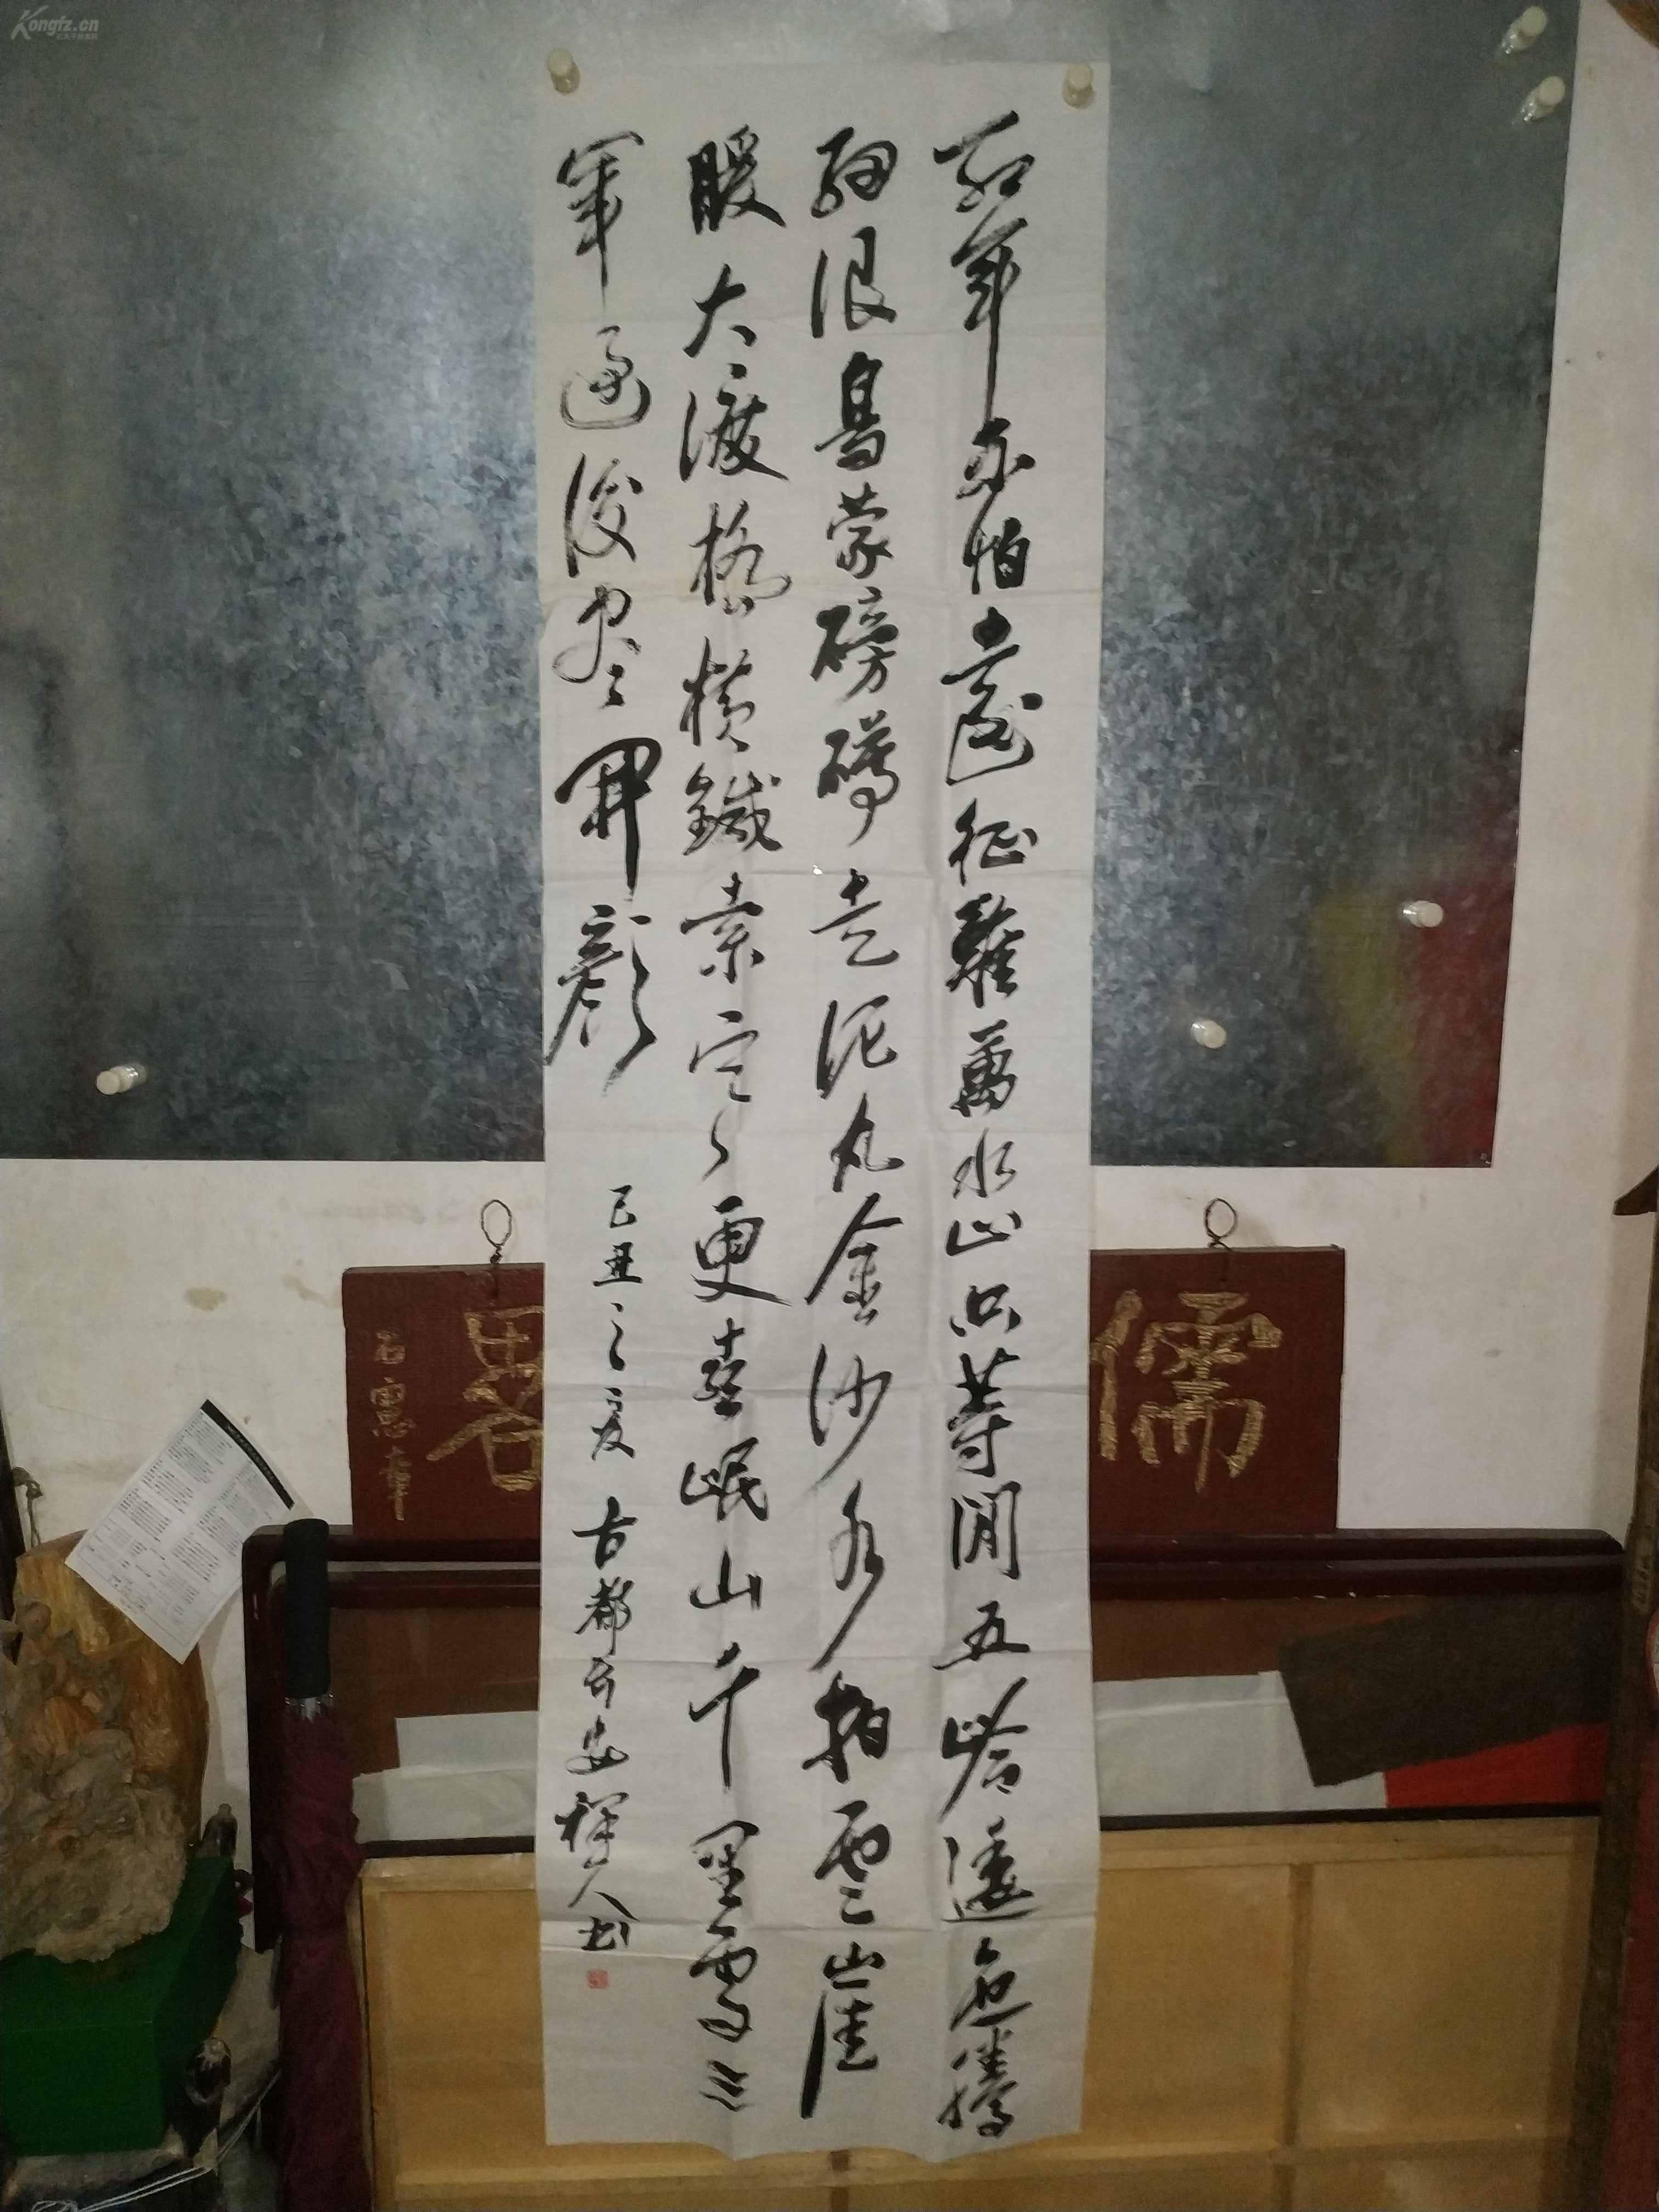 Kongfz.cn
紅軍不怕遠征難萬水山只等閒五嶺逶迤騰
細浪烏蒙磅礴走泥丸金沙水拍雲崖
暖大渡橋橫鐵索寒更喜岷山千里雪三
軍過後盡開顏
己丑之夏 古都長安禪人書
儒